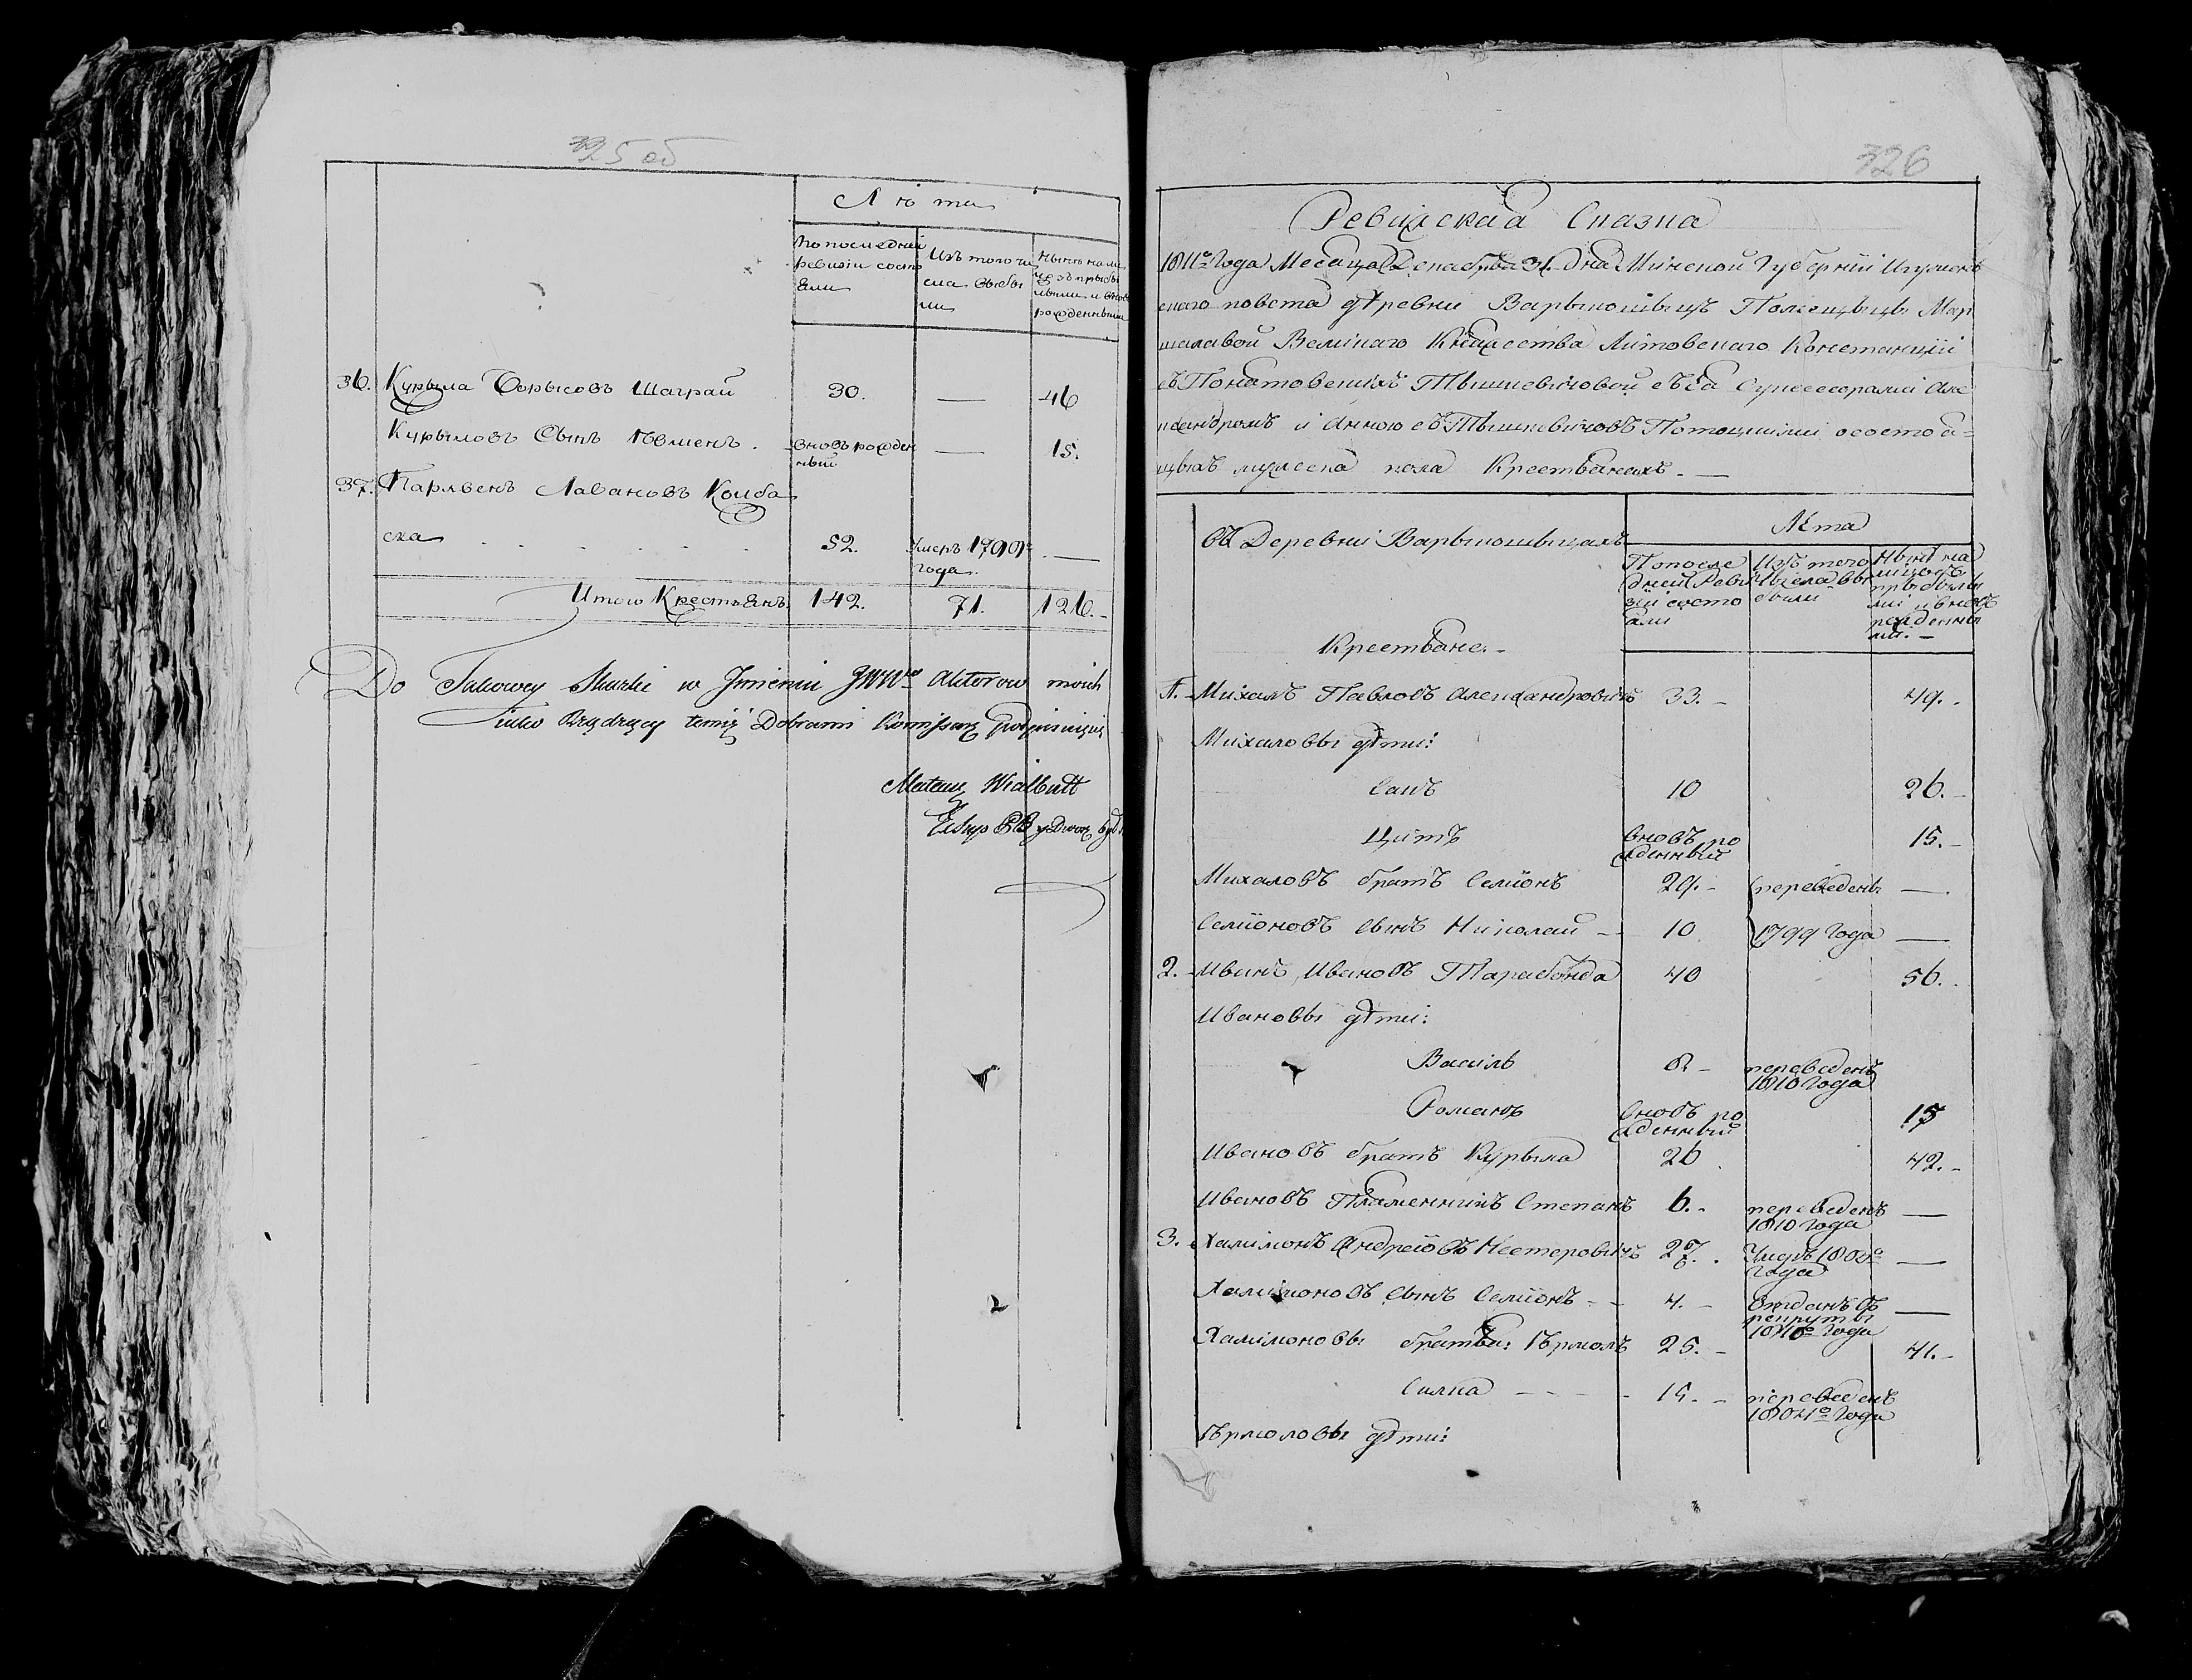 325 об
Лѣта
по последней
ревизіи состо
яли
Изъ того чи
сла выбы
ли
36. Курыла Борысовъ Шаграй 30. — 46
Курыловъ Сынъ вновь рожден
ный — 15.
37. Пархвенъ Колба
ска 52. умеръ 1799
года. —
Итого Крестьянъ. 142. 71. 126.
Do Takowey Skazki w Jmieniu JWWch Aktorow moich
iako Rządzący temiż Dobrami Komissarz podpisuię się
Mateusz Wialbutt
326
Ревизская Сказка
1811го Года Месяца Декабря 31. дня Минской Губерніи Игуменъ
скаго повета дѣревни Варымошыцъ Помещыцы Мар
шалавой Великаго Княжества Литовскаго Констанціи
съ Понятовскихъ Тышкевичовой съ ея Сукцессорами Але
ксандромъ и Анною съ Тышкевичовъ Потоцкими о состоя=
щыхъ мужеска пола Крестьянахъ. —
въ Деревни Варымошыцахъ
Лѣта
По после
дней Реви
зіи состо
яли
Изъ того
числа вы
были
Нынѣ на
лицо съ
прыбылы
ми и вновь
рожденны
ми. —
Крестьяне. -
1. Михалъ Павловъ Александровичъ 33. - 49. -
Михаловы дѣти:
Сакъ 10 26. -
Цитъ вновь ро
жденный 15. -
Михаловъ братъ Семіонъ 29. - переведенъ —.
Семіоновъ Сынъ Николай - - 10 1799 Года —
2. Иванъ Ивановъ Тарабонда 40 56.
Ивановы дѣти:
Василь 8 - переведенъ
1810 Года
Романъ вновь ро
жденный 15
Ивановъ братъ Курыла 26 42. -
Ивановъ Пляменникъ Степанъ 6. - переведенъ
1810 года —
3. Халимонъ Андреіовъ Нестеровичъ 27. Умеръ
года —
Халимоновъ сынъ Семіонъ - - 4. - Отданъ въ
рекруты
1810го Года —
Халимоновы братья: Ермолъ 25. - 41. -
Силка - - - - 15. - переведенъ
1804го Года
Ермоловы дѣти: